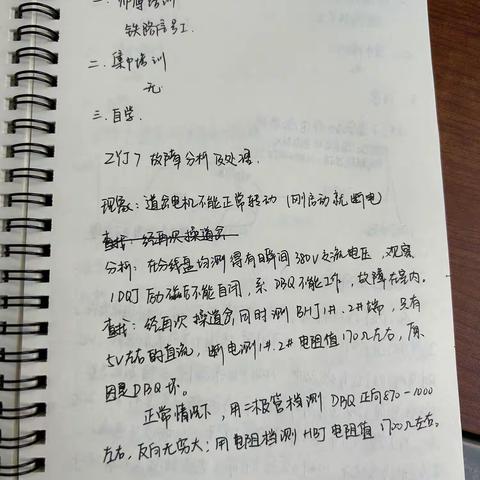 一. 师傅培训
铁路信号工.
二. 集中培训
无.
三. 自学.
ZYJ7 故障分析及处理.
现象: 道岔电机不能正常转动 (刚启动就断电)
查找: 经再次操道岔
分析: 在分线盘均测得有瞬间380V交流电压, 观察
1DQJ 励磁后不能自闭, 系 DBQ不能工作, 故障在室内.
查找: 经再次操道岔同时测 BHJ 1#. 2#端, 只有
5V左右的直流, 断电测1#.2#电阻值170Ω左右, 原
因是DBQ坏.
正常情况下, 用二极管档测 DBQ 正向870-1000
左右, 反向无穷大; 用电阻档测 HBJ 电阻值 1700Ω左右.